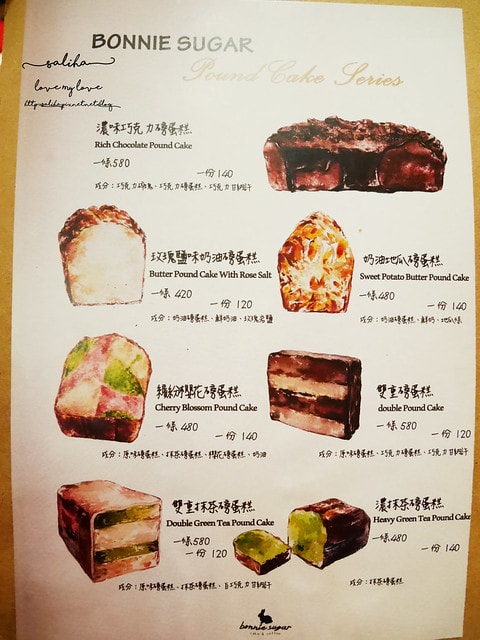 BONNIE SUGAR
Pound Cake Series
saliha
love my love
濃味巧克力磅蛋糕
Rich Chocolate Pound Cake
一條 580
一份 140
成分：巧克力磅蛋糕、巧克力甘納許
玫瑰鹽味奶油磅蛋糕
Butter Pound Cake With Rose Salt
一條 420
一份 120
成分：奶油磅蛋糕、鮮奶油、玫瑰岩鹽
奶油地瓜磅蛋糕
Sweet Potato Butter Pound Cake
一條 480
一份 140
成分：奶油磅蛋糕、鮮奶、地瓜絲
繽紛櫻花磅蛋糕
Cherry Blossom Pound Cake
一條 480
一份 140
成分：原味磅蛋糕、抹茶磅蛋糕、櫻花磅蛋糕、奶油
雙重磅蛋糕
double Pound Cake
一條 580
一份 120
成分：原味磅蛋糕、巧克力磅蛋糕、巧克力甘納許
雙重抹茶磅蛋糕
Double Green Tea Pound Cake
一條 580
一份 120
成分：原味磅蛋糕、抹茶磅蛋糕、白巧克力甘納許
濃抹茶磅蛋糕
Heavy Green Tea Pound Cake
一條 480
一份 140
成分：抹茶磅蛋糕
bonnie sugar